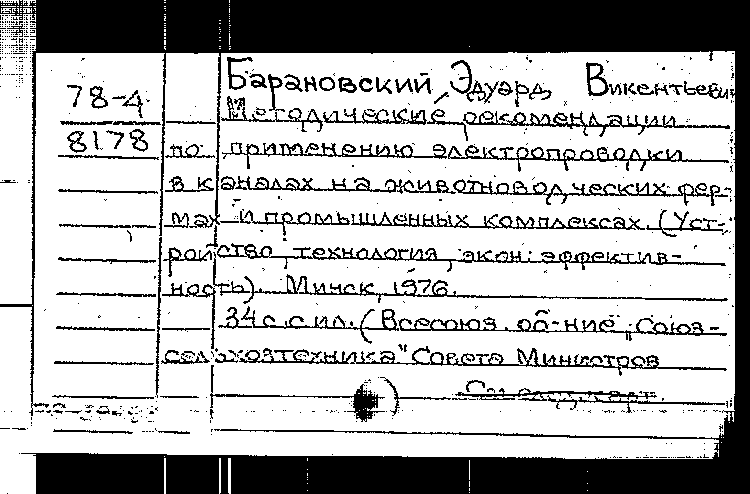 78-4
8178
Барановский, Эдуард Викентьевич
Методические рекомендации
по применению электропроводки
в каналах на животноводческих фер-
мах и промышленных комплексах. (Уст-
ройство, технология, экон. эффектив-
ность). Минск, 1976.
34 с. с ил. (Всесоюз. об-ние „Союз-
сельхозтехника" Совета Министров